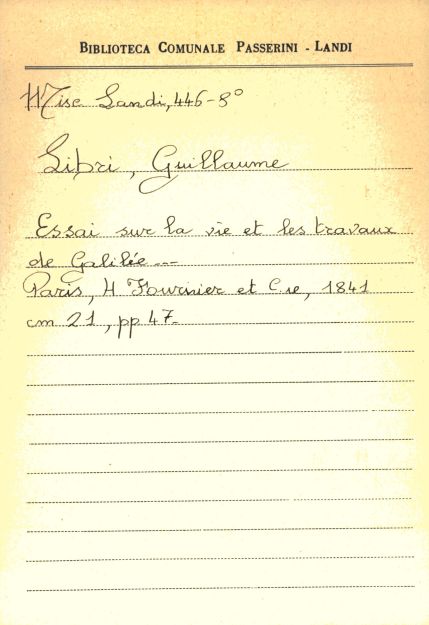 BIBLIOTECA COMUNALE PASSERINI - LANDI
Misc Landi, 446-8°
Libri, Guillaume
Essai sur la vie et les travaux
de Galilée ...
Paris, H Fournier et C.ie, 1841
cm 21, pp 47.